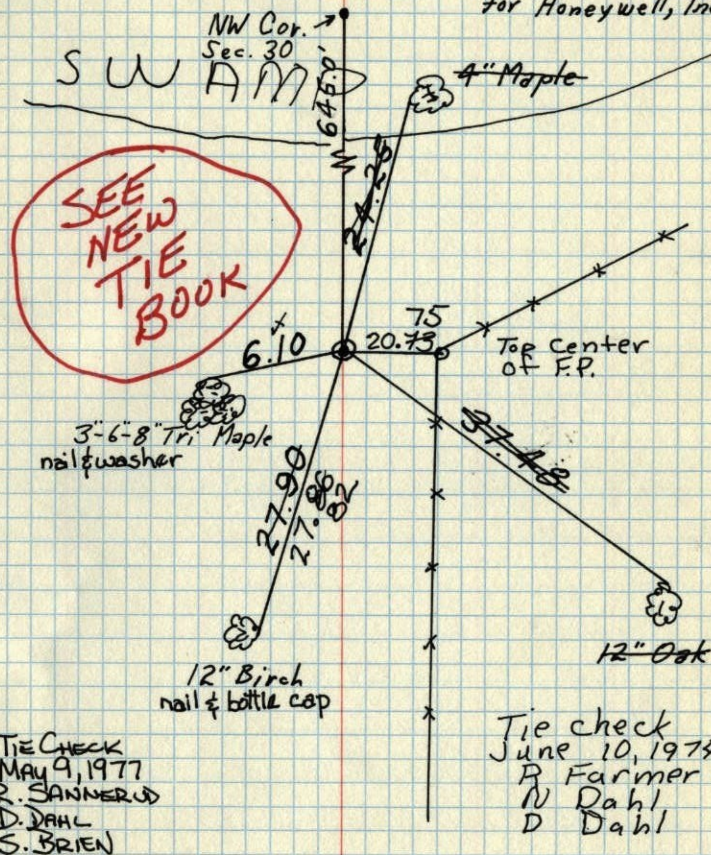 for Honeywell, Inc
NW Cor.
Sec. 30
SWAMP
645.0'
4" Maple
24.25
SEE
NEW
TIE
BOOK
75
6.10
20.73
Top center
of F.P.
3"-6"-8" Tri Maple
nail & washer
37.48
27.90
27.86
82
12" Oak
12" Birch
nail & bottle cap
TIE CHECK
MAY 9, 1977
R. SANNERUD
D. DAHL
S. BRIEN
Tie check
June 10, 197
R Farmer
N Dahl
D Dahl